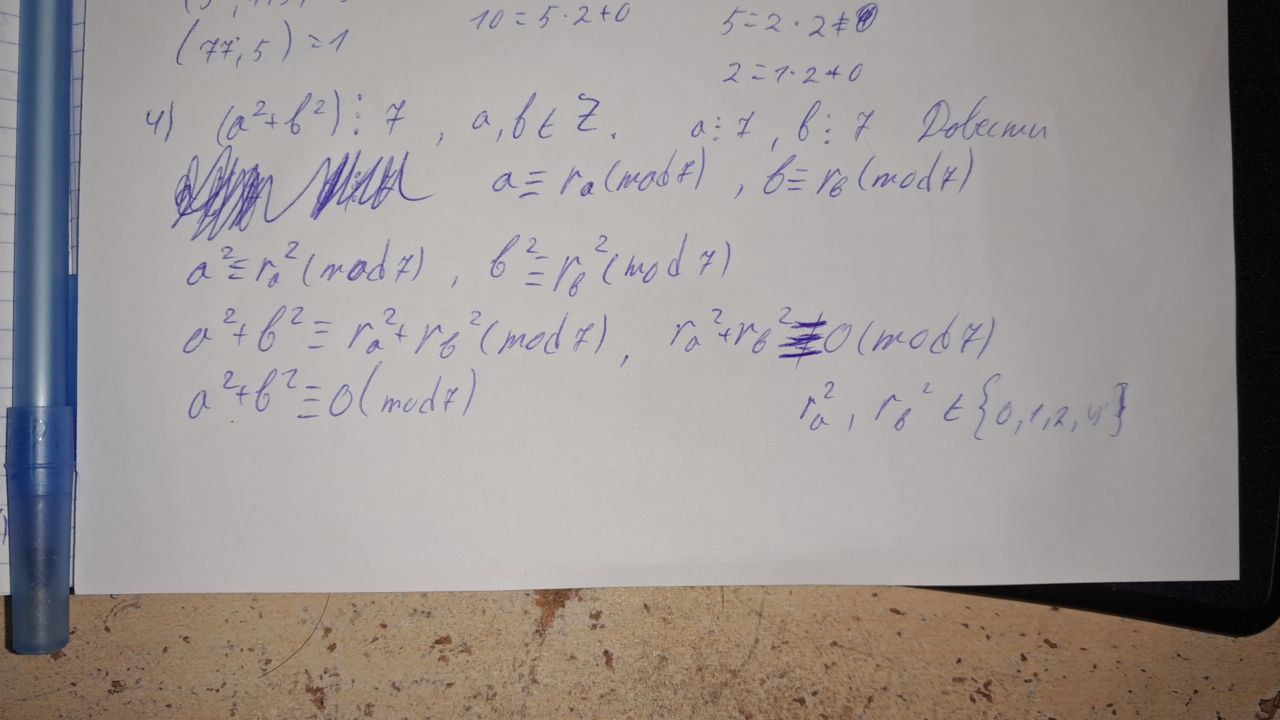 (77; 5) = 1
10 = 5 · 2 + 0
5 = 2 · 2 +
2 = 1 · 2 + 0
4) (a² + b²) ⋮ 7 , a, b ∈ Z. a ⋮ 7 , b ⋮ 7 Довести
a ≡ rₐ (mod 7) , b ≡ r_b (mod 7)
a² ≡ rₐ² (mod 7) , b² ≡ r_b² (mod 7)
a² + b² ≡ rₐ² + r_b² (mod 7) , rₐ² + r_b² ≡ 0 (mod 7)
a² + b² ≡ 0 (mod 7)
rₐ² , r_b² ∈ {0, 1, 2, 4}